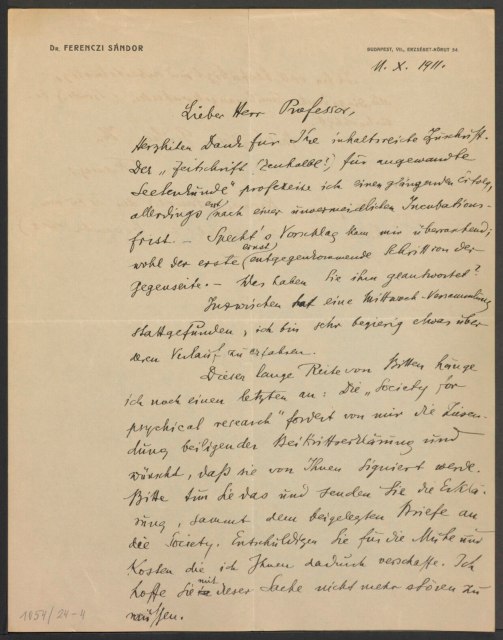 Dr. FERENCZI SÁNDOR
BUDAPEST, VII., ERZSÉBET-KÖRUT 54.
11. X. 1911.
Lieber Herr Professor,
Herzlichen Dank für Ihre inhaltsreiche Zuschrift.
Der „Zeitschrift (Zentralbl.!) für angewandte
Seelenkunde" profezeie ich einen glänzenden Erfolg,
allerdings erst nach einer unvermeidlichen Incubations-
frist. – Specht's Vorschlag kam mir überraschend;
wohl der erste (ernst) entgegenkommende Schritt von der
Gegenseite. – Was haben Sie ihm geantwortet?
Inzwischen hat eine Mittwoch-Versammlung
stattgefunden, ich bin sehr begierig etwas über
deren Verlauf zu erfahren.
Dieser lange Reihe von Bitten hänge
ich noch einen letzten an: Die „Society for
psychical research" fordert von mir die Zusen-
dung beiligender Beitrittserklärung und
wünscht, daß sie von Ihnen signiert werde.
Bitte tun Sie das und senden Sie die Erklä-
rung, sammt dem beigelegten Briefe an
die Society. Entschuldigen Sie für die Mühe und
Kosten die ich Ihnen dadurch verschaffe. Ich
hoffe Sie mit dieser Sache nicht mehr stören zu
müssen.
1054/24-4